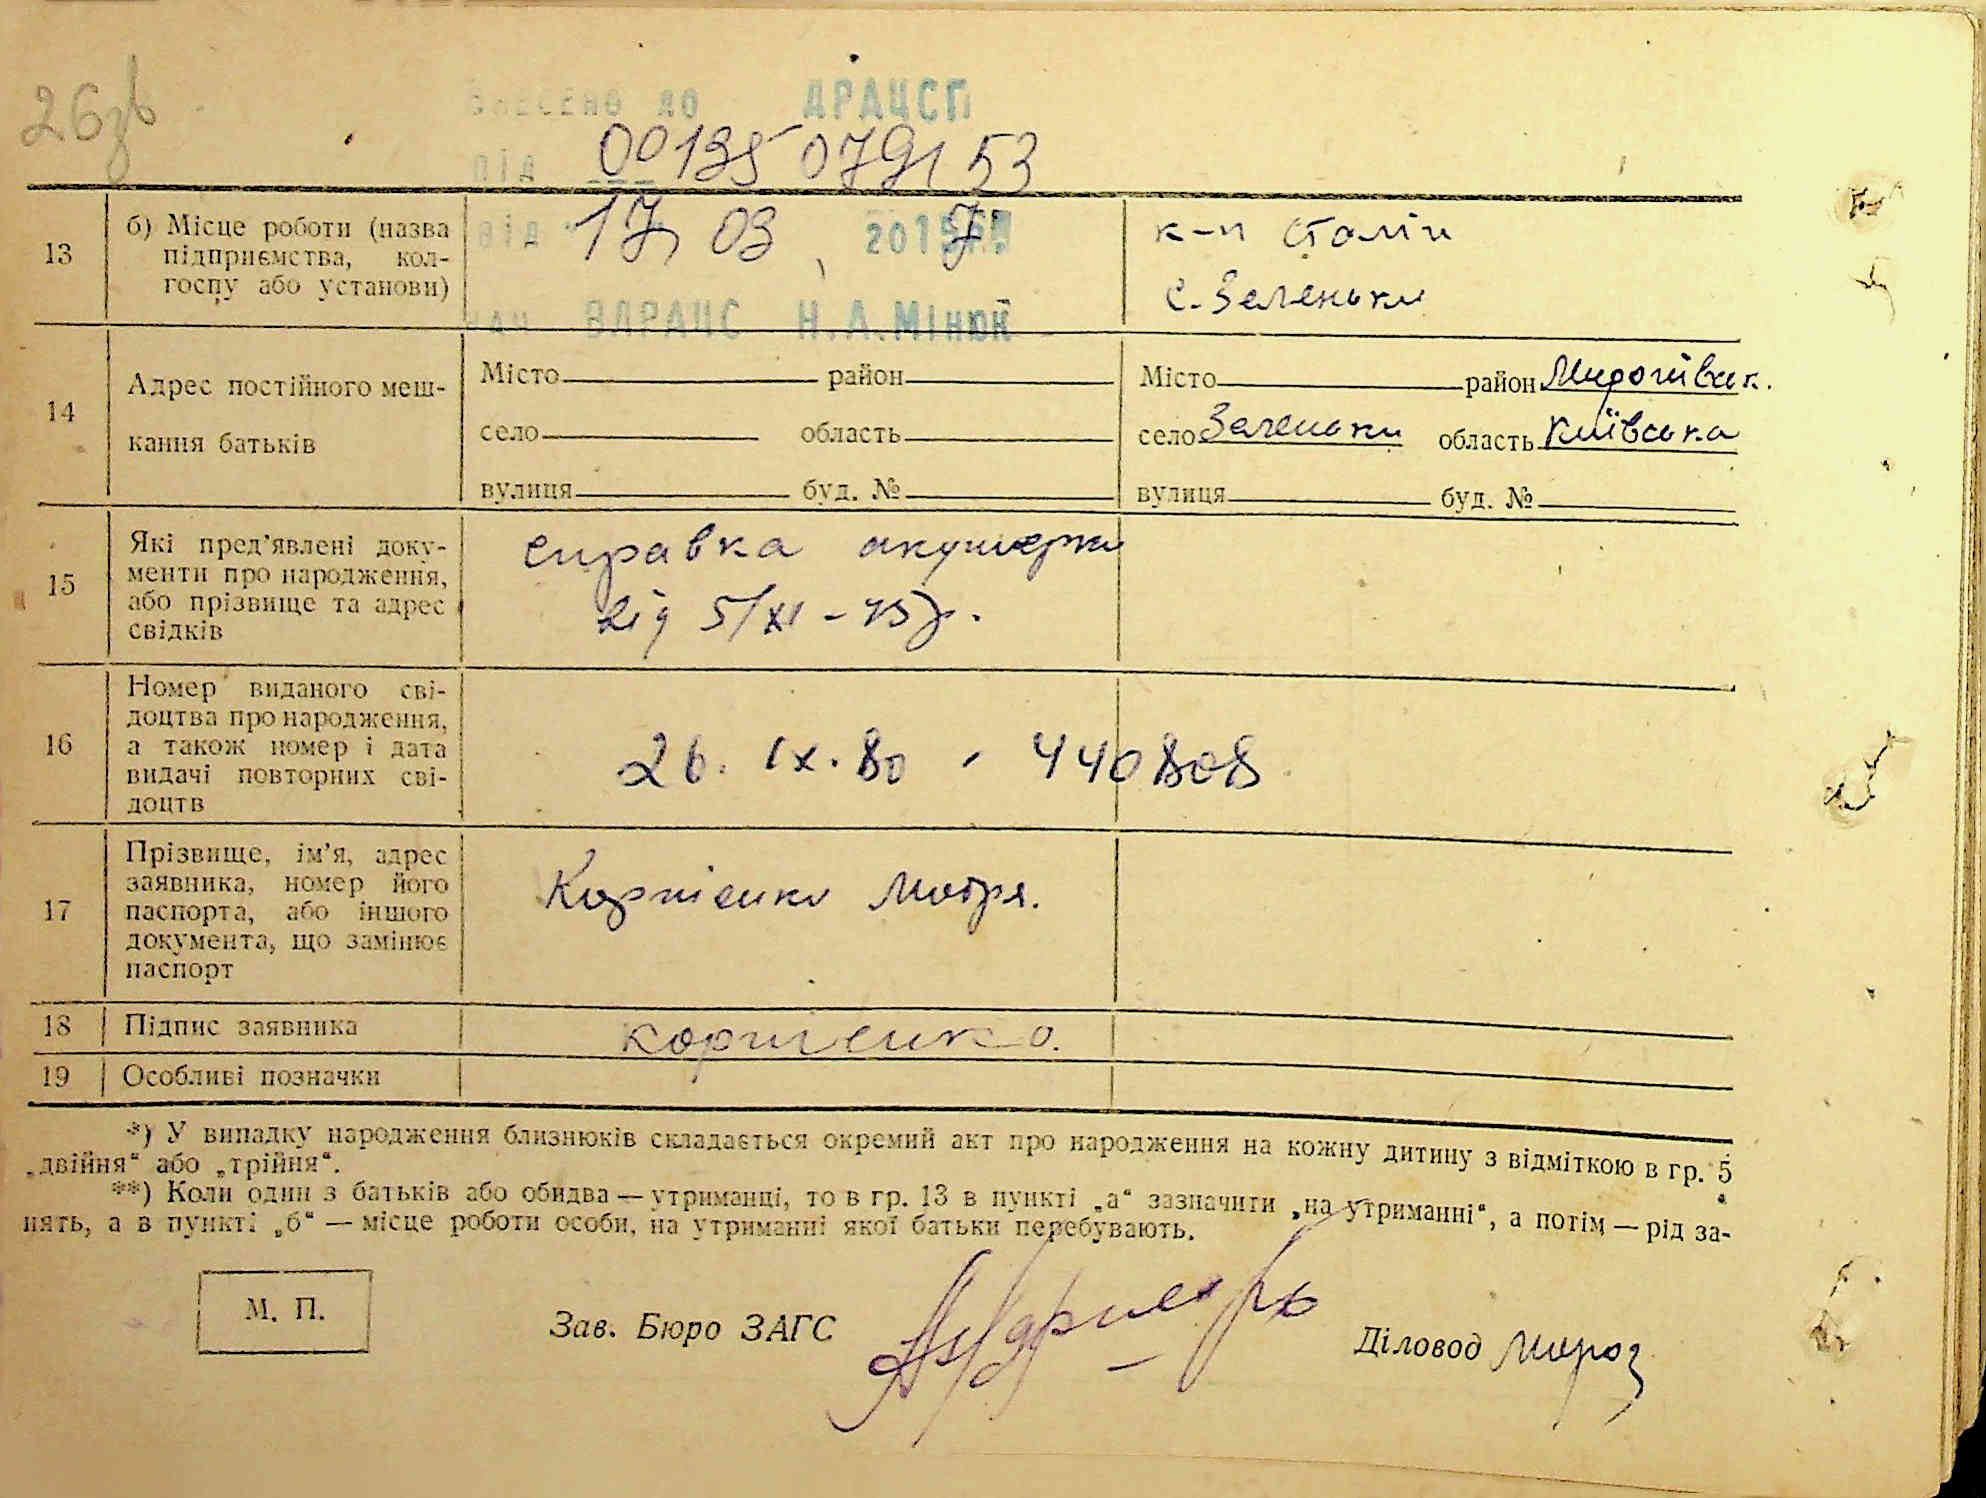 26зв
ВНЕСЕНО ДО ДРАЦСГ
ПІД 00135079153
13 б) Місце роботи (назва підприємства, кол-
госпу або установи)
від 17 03, 2017
к-п Сталін
с. Зеленьки
нач ВДРАЦС Н.А.Мінюк
14 Адрес постійного меш-
кання батьків
Місто район
село область
вулиця буд. №
Місто район Миронівськ.
село Зеленьки область Київська
вулиця буд. №
15 Які пред'явлені доку-
менти про народження,
або прізвище та адрес
свідків
справка акушерки
від 5/XI-45 р.
16 Номер виданого сві-
доцтва про народження,
а також номер і дата
видачі повторних сві-
доцтв
26. IX. 80 440808
17 Прізвище, ім'я, адрес
заявника, номер його
паспорта, або іншого
документа, що замінює
паспорт
Корнієнко Мотря.
18 Підпис заявника
корниенко.
19 Особливі позначки
*) У випадку народження близнюків складається окремий акт про народження на кожну дитину з відміткою в гр. 5
„двійня“ або „трійня“.
**) Коли один з батьків або обидва — утриманці, то в гр. 13 в пункті „а“ зазначити „на утриманні“, а потім — рід за-
нять, а в пункті „б“ — місце роботи особи, на утриманні якої батьки перебувають.
М. П.
Зав. Бюро ЗАГС
Діловод Мороз